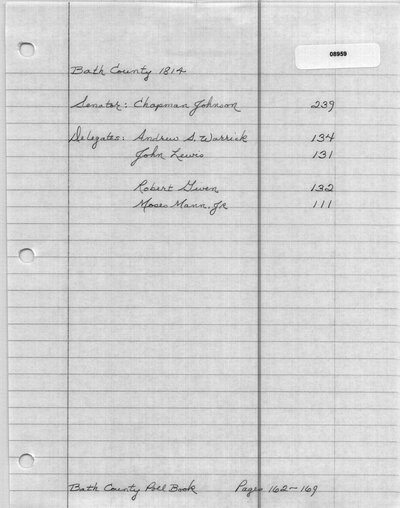 08959
Bath County 1814
Senator: Chapman Johnson 239
Delegates: Andrew S. Warrick 134
John Lewis 131
Robert Given 132
Moses Mann, Jr 111
Bath County Poll Book Pages 162-169